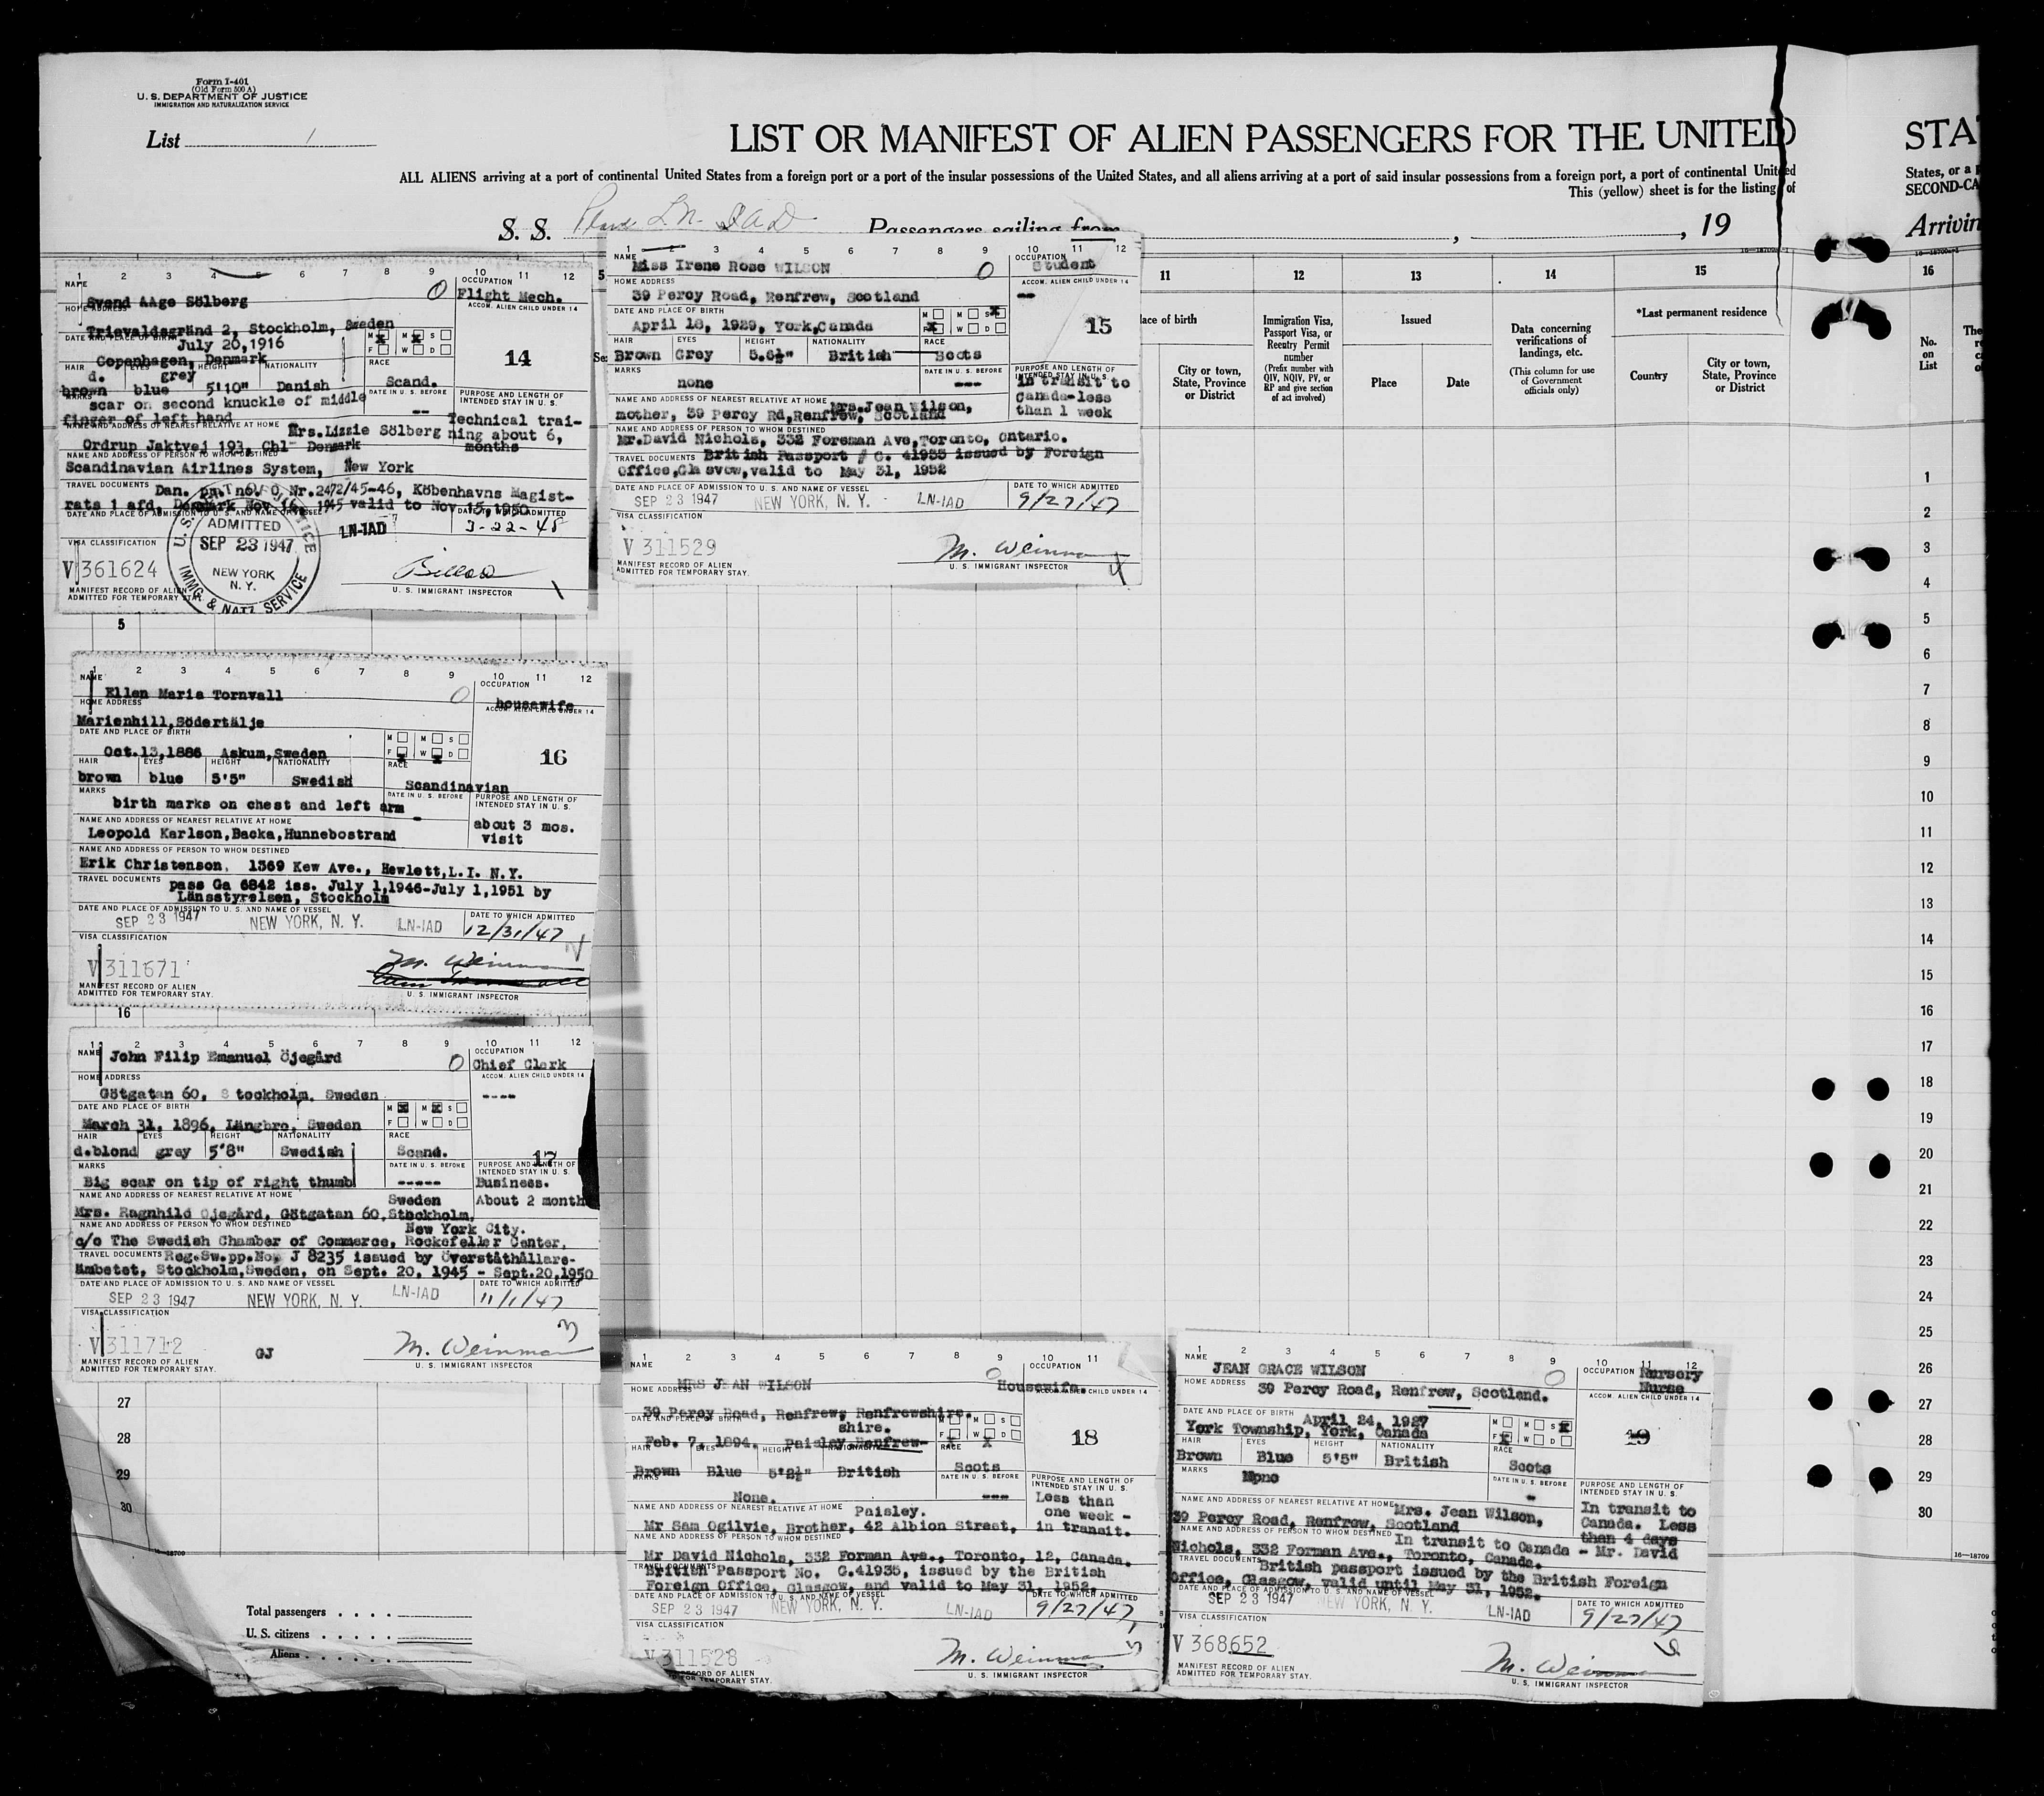 Form I-401
(Old Form 500 A)
U. S. DEPARTMENT OF JUSTICE
IMMIGRATION AND NATURALIZATION SERVICE
List 1
LIST OR MANIFEST OF ALIEN PASSENGERS FOR THE UNITED
STA
ALL ALIENS arriving at a port of continental United States from a foreign port or a port of the insular possessions of the United States, and all aliens arriving at a port of said insular possessions from a foreign port, a port of continental United
States, or a p
This (yellow) sheet is for the listing of
SECOND-CA
S. S. Plane LN-IAD Passengers sailing from , , 19
Arrivin
1 2 3 4 5 6 7 8 9 10 11 12
NAME Svend Aage Sölberg O
OCCUPATION Flight Mech.
HOME ADDRESS
ACCOM. ALIEN CHILD UNDER 14
Trievaldsgränd 2, Stockholm, Sweden
DATE AND PLACE OF BIRTH July 20,1916
M X M X S
F W D
Copenhagen, Denmark
14
HAIR EYES HEIGHT NATIONALITY RACE
d. grey
brown blue 5'10" Danish Scand.
MARKS scar on second knuckle of middle
DATE IN U. S. BEFORE --
finger of left hand
PURPOSE AND LENGTH OF INTENDED STAY IN U. S.
Technical trai-
ning about 6,
months
NAME AND ADDRESS OF NEAREST RELATIVE AT HOME Mrs.Lizzie Sölberg
Ordrup Jaktvej 193, Chl- Denmark
NAME AND ADDRESS OF PERSON TO WHOM DESTINED
Scandinavian Airlines System, New York
TRAVEL DOCUMENTS Dan. pp. no. O Nr.2472/45-46, Köbenhavns Magist-
rats 1 afd, Denmark Nov.16, 1945 valid to Nov 15, 1950
DATE AND PLACE OF ADMISSION TO U. S. AND NAME OF VESSEL
DATE TO WHICH ADMITTED
ADMITTED
SEP 23 1947
NEW YORK
N. Y.
IMMIG. & NATL SERVICE
LN-IAD
3-22-48
VISA CLASSIFICATION
V 361624
MANIFEST RECORD OF ALIEN
ADMITTED FOR TEMPORARY STAY.
U. S. IMMIGRANT INSPECTOR
1 2 3 4 5 6 7 8 9 10 11 12
NAME Miss Irene Rose WILSON O
OCCUPATION Student
HOME ADDRESS
ACCOM. ALIEN CHILD UNDER 14
39 Percy Road, Renfrew, Scotland --
DATE AND PLACE OF BIRTH
M M S X
F X W D
April 18, 1929, York,Canada
15
HAIR EYES HEIGHT NATIONALITY RACE
Brown Grey 5.6½" British Scots
MARKS none
DATE IN U. S. BEFORE ---
PURPOSE AND LENGTH OF INTENDED STAY IN U. S.
in transit to
Canada-less
than 1 week
NAME AND ADDRESS OF NEAREST RELATIVE AT HOME Mrs.Jean Wilson,
mother, 39 Percy Rd,Renfrew, Scotland
NAME AND ADDRESS OF PERSON TO WHOM DESTINED
Mr.David Nichols, 332 Foreman Ave,Toronto, Ontario.
TRAVEL DOCUMENTS British Passport # C. 41935 issued by Foreign
Office,Glasvow,valid to May 31, 1952
DATE AND PLACE OF ADMISSION TO U. S. AND NAME OF VESSEL
DATE TO WHICH ADMITTED
SEP 23 1947 NEW YORK, N. Y. LN-IAD 9/27/47
VISA CLASSIFICATION
V 311529
M. Weinman
MANIFEST RECORD OF ALIEN
ADMITTED FOR TEMPORARY STAY.
U. S. IMMIGRANT INSPECTOR
11 12 13 14 15 16
lace of birth
City or town, State, Province or District
Immigration Visa, Passport Visa, or Reentry Permit number
(Prefix number with QIV, NQIV, PV, or RP and give section of act involved)
Issued
Place Date
Data concerning verifications of landings, etc.
(This column for use of Government officials only)
*Last permanent residence
Country
City or town, State, Province or District
No. on List
1
2
3
4
5
6
7
8
9
10
11
12
13
14
15
16
17
18
19
20
21
22
23
24
25
26
27
28
29
30
5
1 2 3 4 5 6 7 8 9 10 11 12
NAME Ellen Maria Tornvall O
OCCUPATION housewife
HOME ADDRESS
ACCOM. ALIEN CHILD UNDER 14
Marienhill,Södertälje
DATE AND PLACE OF BIRTH
M M S
F X W X D
Oct.13,1886 Askum,Sweden
16
HAIR EYES HEIGHT NATIONALITY RACE
brown blue 5'5" Swedish Scandinavian
MARKS
DATE IN U. S. BEFORE -
PURPOSE AND LENGTH OF INTENDED STAY IN U. S.
birth marks on chest and left arm
about 3 mos.
visit
NAME AND ADDRESS OF NEAREST RELATIVE AT HOME
Leopold Karlson,Backa,Hunnebostrand
NAME AND ADDRESS OF PERSON TO WHOM DESTINED
Erik Christenson, 1369 Kew Ave., Hewlett,L.I. N.Y.
TRAVEL DOCUMENTS pass Ga 6842 iss. July 1,1946-July 1,1951 by
Länsstyrelsen, Stockholm
DATE AND PLACE OF ADMISSION TO U. S. AND NAME OF VESSEL
DATE TO WHICH ADMITTED
SEP 23 1947 NEW YORK, N. Y. LN-IAD 12/31/47
VISA CLASSIFICATION
V 311671
M. Weinman
MANIFEST RECORD OF ALIEN
ADMITTED FOR TEMPORARY STAY.
U. S. IMMIGRANT INSPECTOR
16
1 2 3 4 5 6 7 8 9 10 11 12
NAME John Filip Emanuel Öjegård O
OCCUPATION Chief Clerk
HOME ADDRESS
ACCOM. ALIEN CHILD UNDER 14
Götgatan 60, Stockholm, Sweden ----
DATE AND PLACE OF BIRTH
M X M X S
F W D
March 31, 1896, Längbro, Sweden
HAIR EYES HEIGHT NATIONALITY RACE
d.blond grey 5'8" Swedish Scand.
17
MARKS
DATE IN U. S. BEFORE -----
PURPOSE AND LENGTH OF INTENDED STAY IN U. S.
Big scar on tip of right thumb
Business.
About 2 month
NAME AND ADDRESS OF NEAREST RELATIVE AT HOME Sweden
Mrs. Ragnhild Ojegård, Götgatan 60,Stockholm,
NAME AND ADDRESS OF PERSON TO WHOM DESTINED New York City.
c/o The Swedish Chamber of Commerce, Rockefeller Center,
TRAVEL DOCUMENTS Reg.Sw.pp.No. J 8235 issued by Överståthållare-
ämbetet, Stockholm,Sweden, on Sept. 20, 1945 - Sept.20,1950
DATE AND PLACE OF ADMISSION TO U. S. AND NAME OF VESSEL
DATE TO WHICH ADMITTED
SEP 23 1947 NEW YORK, N. Y. LN-IAD 11/1/47
VISA CLASSIFICATION
V 311712 GJ
M. Weinman
MANIFEST RECORD OF ALIEN
ADMITTED FOR TEMPORARY STAY.
U. S. IMMIGRANT INSPECTOR
27
28
29
30
16—18709
Total passengers
U. S. citizens
Aliens
1 2 3 4 5 6 7 8 9 10 11
NAME MRS JEAN WILSON O
OCCUPATION Housewife.
HOME ADDRESS
ACCOM. ALIEN CHILD UNDER 14
39 Percy Road, Renfrew, Renfrewshire.
DATE AND PLACE OF BIRTH shire.
M M S
F X W X D
Feb. 7, 1894. Paisley Renfrew-
18
HAIR EYES HEIGHT NATIONALITY RACE
Brown Blue 5'2½" British Scots
MARKS None.
DATE IN U. S. BEFORE ---
PURPOSE AND LENGTH OF INTENDED STAY IN U. S.
Less than
one week -
in transit.
NAME AND ADDRESS OF NEAREST RELATIVE AT HOME Paisley.
Mr Sam Ogilvie, Brother, 42 Albion Street,
NAME AND ADDRESS OF PERSON TO WHOM DESTINED
Mr David Nichols, 332 Forman Ave., Toronto, 12, Canada.
TRAVEL DOCUMENTS British Passport No. C.41935, issued by the British
Foreign Office, Glasgow, and valid to May 31, 1952.
DATE AND PLACE OF ADMISSION TO U. S. AND NAME OF VESSEL
DATE TO WHICH ADMITTED
SEP 23 1947 NEW YORK, N. Y. LN-IAD 9/27/47
VISA CLASSIFICATION
V 311528
M. Weinman
RECORD OF ALIEN
FOR TEMPORARY STAY.
U. S. IMMIGRANT INSPECTOR
1 2 3 4 5 6 7 8 9 10 11 12
NAME JEAN GRACE WILSON O
OCCUPATION Nursery
Nurse
HOME ADDRESS 39 Percy Road, Renfrew, Scotland.
ACCOM. ALIEN CHILD UNDER 14
DATE AND PLACE OF BIRTH April 24, 1927
York Township, York, Canada
M M S X
F X W D
19
HAIR EYES HEIGHT NATIONALITY RACE
Brown Blue 5'5" British Scots
MARKS None
DATE IN U. S. BEFORE -
PURPOSE AND LENGTH OF INTENDED STAY IN U. S.
In transit to
Canada. Less
than 4 days
NAME AND ADDRESS OF NEAREST RELATIVE AT HOME Mrs. Jean Wilson,
39 Percy Road, Renfrew, Scotland
NAME AND ADDRESS OF PERSON TO WHOM DESTINED In transit to Canada - Mr. David
Nichols, 332 Forman Ave., Toronto, Canada.
TRAVEL DOCUMENTS British passport issued by the British Foreign
Office, Glasgow, valid until May 31, 1952.
DATE AND PLACE OF ADMISSION TO U. S. AND NAME OF VESSEL
DATE TO WHICH ADMITTED
SEP 23 1947 NEW YORK, N. Y. LN-IAD 9/27/47
VISA CLASSIFICATION
V 368652
M. Weinman
MANIFEST RECORD OF ALIEN
ADMITTED FOR TEMPORARY STAY.
U. S. IMMIGRANT INSPECTOR
16—18709